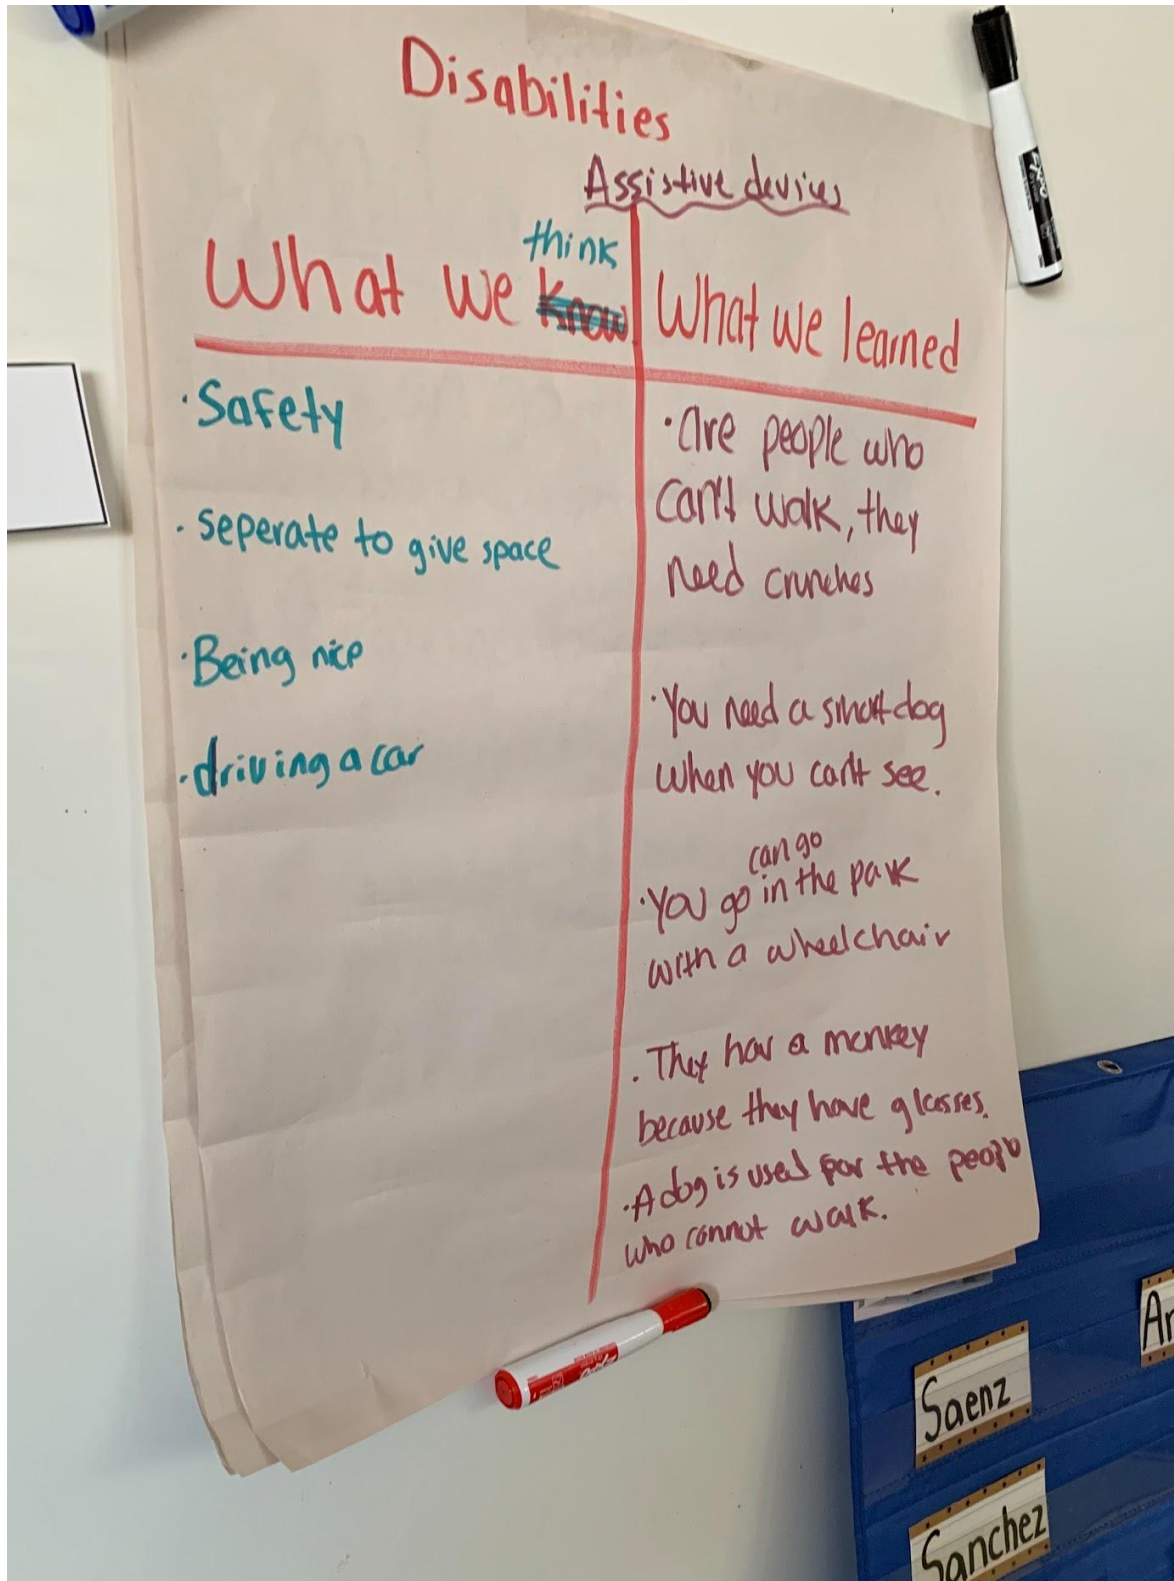 Disabilities
Assistive devices
think
What we know
What we learned
· Safety
· seperate to give space
· Being nice
· driving a car
· are people who
can't walk, they
need crunches
· You need a smart dog
when you can't see.
can go
· You go in the park
with a wheelchair
· They hav a monkey
because they have glasses.
· A dog is used for the people
who cannot walk.
EXPO
Saenz
Sanchez
Ar